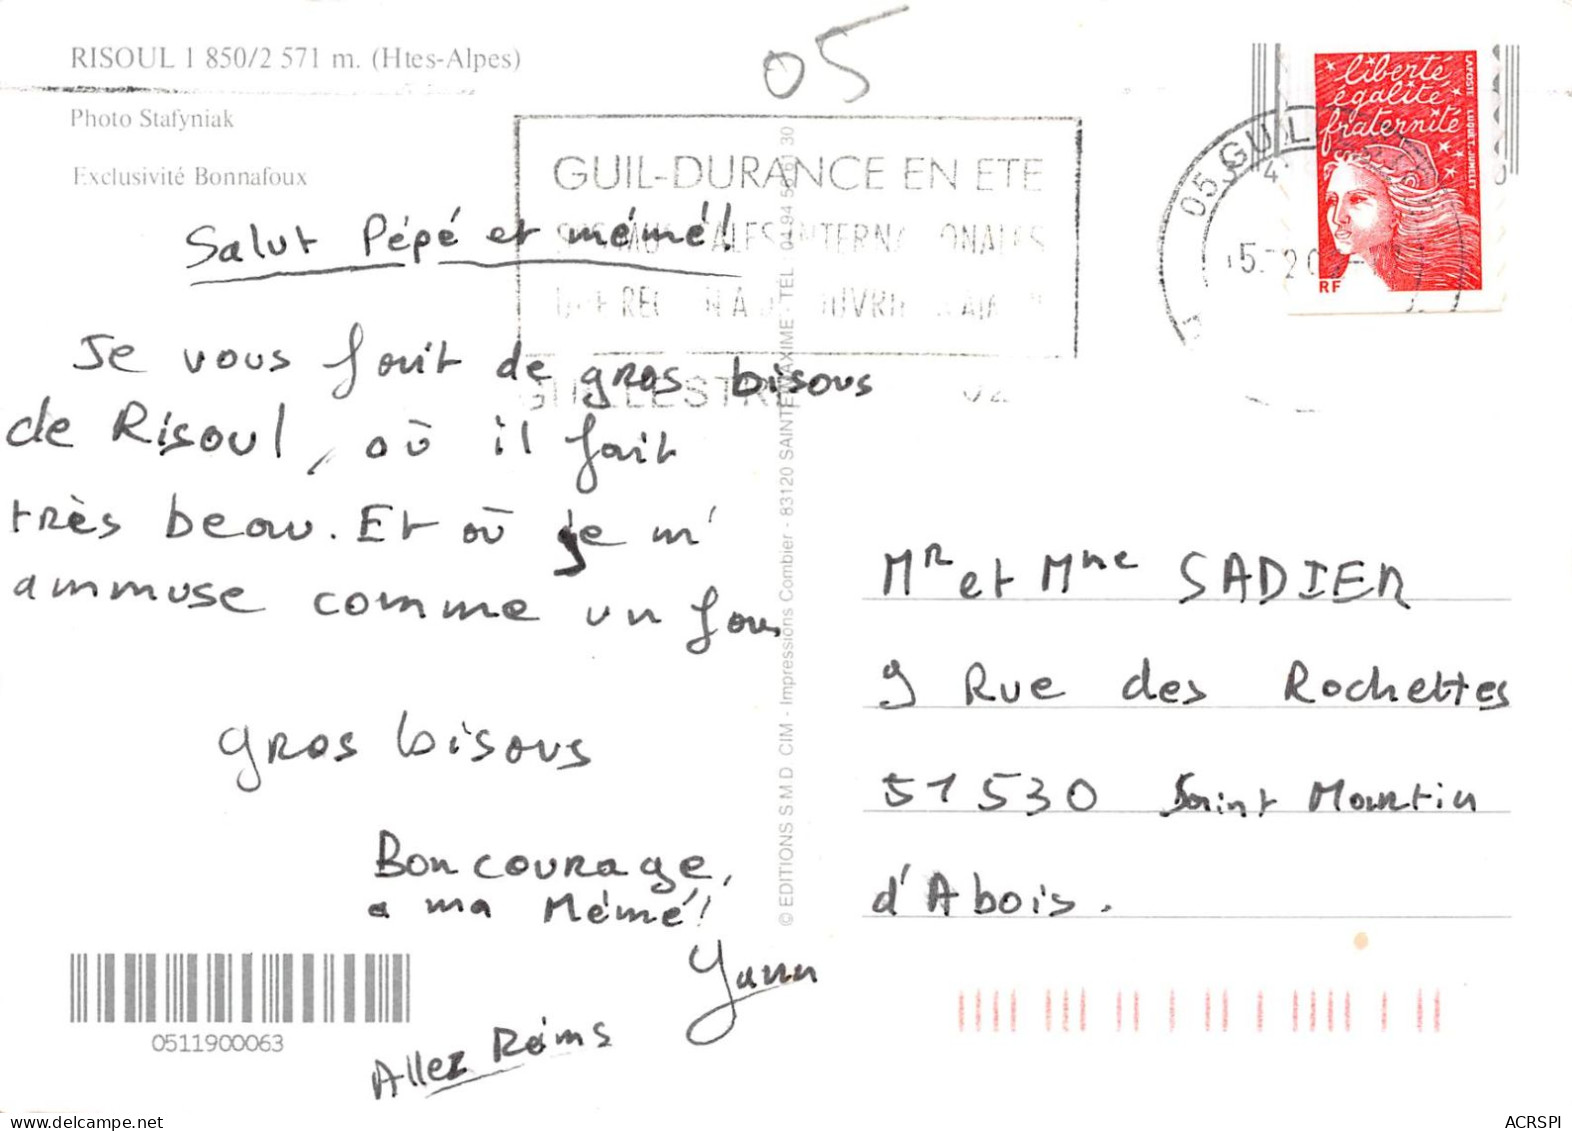 RISOUL 1 850/2 571 m. (Htes-Alpes)
Photo Stafyniak
Exclusivité Bonnafoux
05
GUIL-DURANCE EN ETE
GUILLESTRE
05 GUIL
liberté
égalité
fraternité
RF
LAPOSTE LUQUET-JUMELET
Salut Pépé et mémé!
Je vous fait de gros bisous
de Risoul, où il fait
très beau. Et où je m'
ammuse comme un fou
gros bisous
Bon courage,
a ma Mémé!
Yann
Allez Reims
© EDITIONS S.M.D CIM - Impressions Combier - 83120 SAINTE MAXIME - TEL
Mr et Mme SADIER
9 Rue des Rochettes
51530 Saint Martin
d'Abois.
0511900063
delcampe.net
ACRSPI